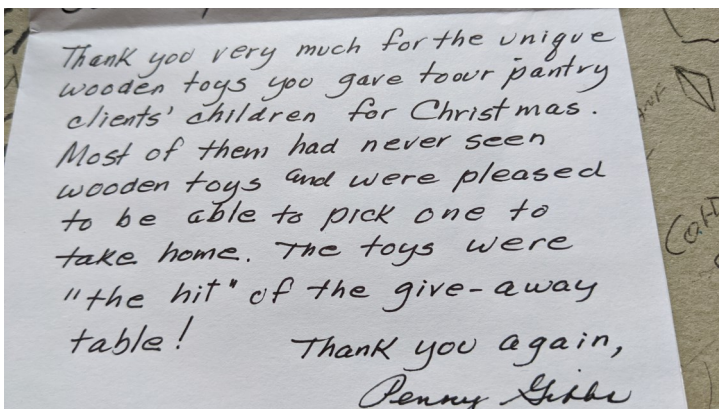 Thank you very much for the unique
wooden toys you gave to our pantry
clients' children for Christmas.
Most of them had never seen
wooden toys and were pleased
to be able to pick one to
take home. The toys were
"the hit" of the give-away
table!
Thank you again,
Penny Gibbs